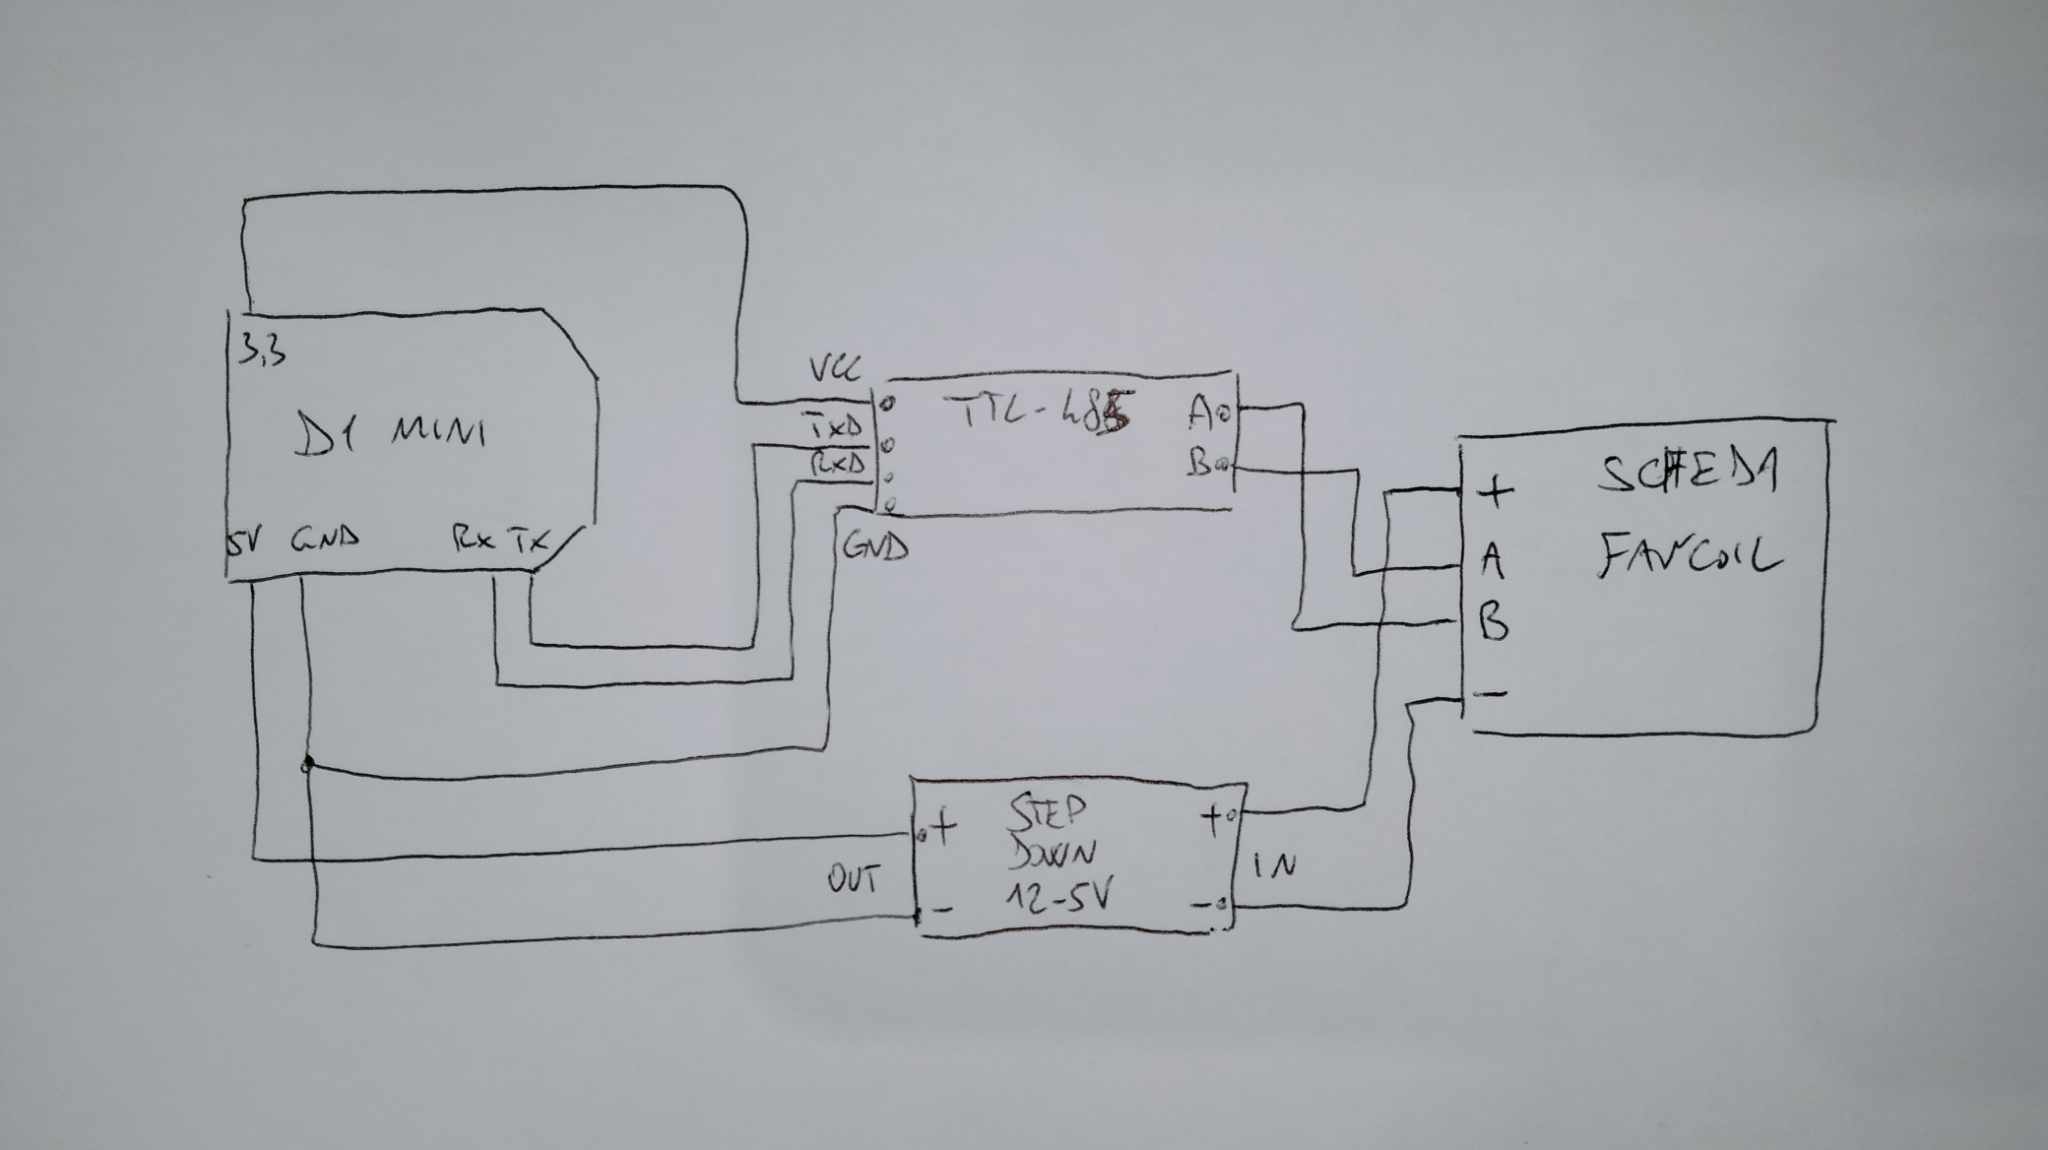 3,3
D1 MINI
5V GND Rx TX
VCC
TXD
RXD
GND
TTL-485
A
B
+
A
B
-
SCHEDA
FANCOIL
+
-
OUT
STEP
DOWN
12-5V
+
-
IN